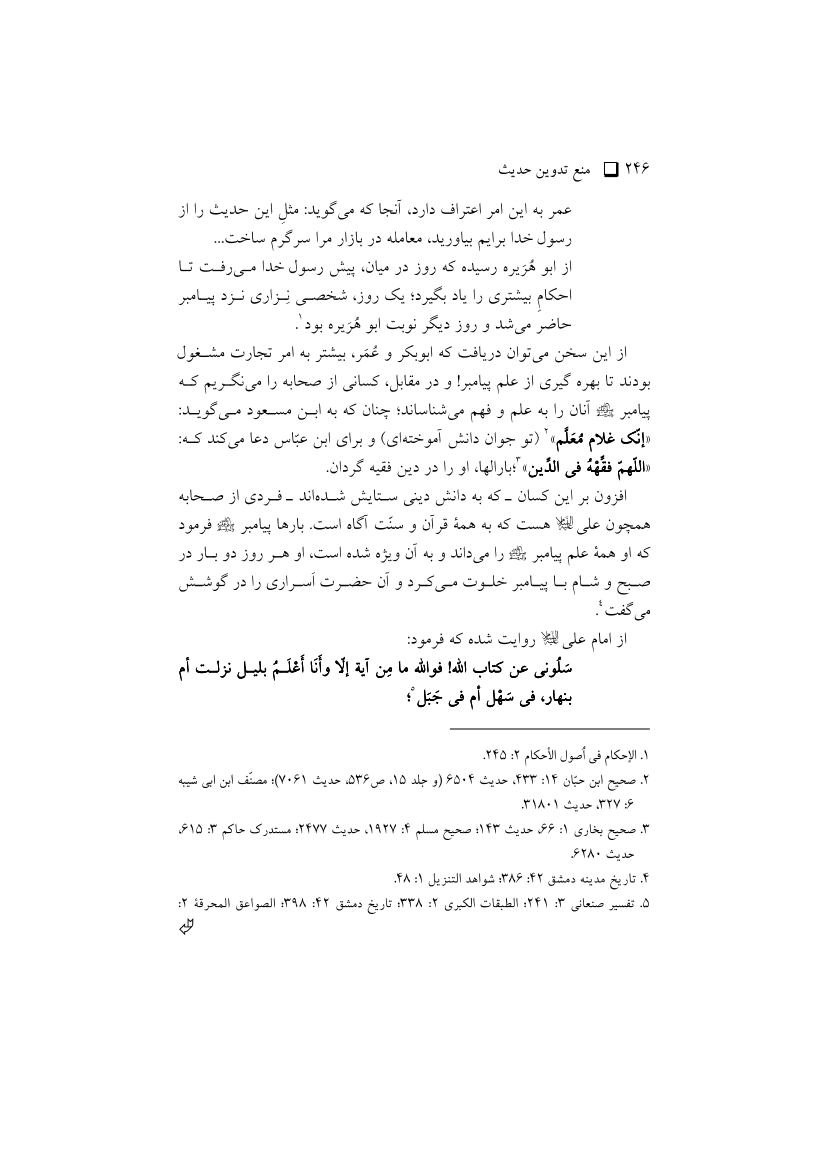 ۲۴۶ ❏ منع تدوین حدیث
عمر به این امر اعتراف دارد، آنجا که می‌گوید: مثلِ این حدیث را از
رسول خدا برایم بیاورید، معامله در بازار مرا سرگرم ساخت...
از ابو هُرَیره رسیده که روز در میان، پیش رسول خدا مـی‌رفـت تـا
احکامِ بیشتری را یاد بگیرد؛ یک روز، شخصـی نِـزاری نـزد پیـامبر
حاضر می‌شد و روز دیگر نوبت ابو هُرَیره بود۱.
از این سخن می‌توان دریافت که ابوبکر و عُمَر، بیشتر به امر تجارت مشـغول
بودند تا بهره گیری از علم پیامبر! و در مقابل، کسانی از صحابه را می‌نگـریم کـه
پیامبر ﷺ آنان را به علم و فهم می‌شناساند؛ چنان که به ابـن مسـعود مـی‌گویـد:
«إنّک غلام مُعَلَّم»۲ (تو جوان دانش آموخته‌ای) و برای ابن عبّاس دعا می‌کند کـه:
«اللّهمّ فقِّهْهُ فی الدِّین»۳؛بارالها، او را در دین فقیه گردان.
افزون بر این کسان ـ که به دانش دینی سـتایش شـده‌اند ـ فـردی از صـحابه
همچون علی هست که به همهٔ قرآن و سنّت آگاه است. بارها پیامبر ﷺ فرمود
که او همهٔ علم پیامبر ﷺ را می‌داند و به آن ویژه شده است، او هـر روز دو بـار در
صـبح و شـام بـا پیـامبر خلـوت مـی‌کـرد و آن حضـرت اَسـراری را در گوشـش
می‌گفت۴.
از امام علی روایت شده که فرمود:
سَلُونی عن کتاب الله! فوالله ما مِن آیة إلّا وأَنَا أَعْلَـمُ بلیـل نزلـت أم
بنهار، فی سَهْل أم فی جَبَل۵؛
۱. الإحکام فی أصول الأحکام ۲: ۲۴۵.
۲. صحیح ابن حبّان ۱۴: ۴۳۳، حدیث ۶۵۰۴ (و جلد ۱۵، ص۵۳۶، حدیث ۷۰۶۱)؛ مصنّف ابن ابی شیبه
۶: ۳۲۷، حدیث ۳۱۸۰۱.
۳. صحیح بخاری ۱: ۶۶، حدیث ۱۴۳؛ صحیح مسلم ۴: ۱۹۲۷، حدیث ۲۴۷۷؛ مستدرک حاکم ۳: ۶۱۵،
حدیث ۶۲۸۰.
۴. تاریخ مدینه دمشق ۴۲: ۳۸۶؛ شواهد التنزیل ۱: ۴۸.
۵. تفسیر صنعانی ۳: ۲۴۱؛ الطبقات الکبری ۲: ۳۳۸؛ تاریخ دمشق ۴۲: ۳۹۸؛ الصواعق المحرقة ۲: